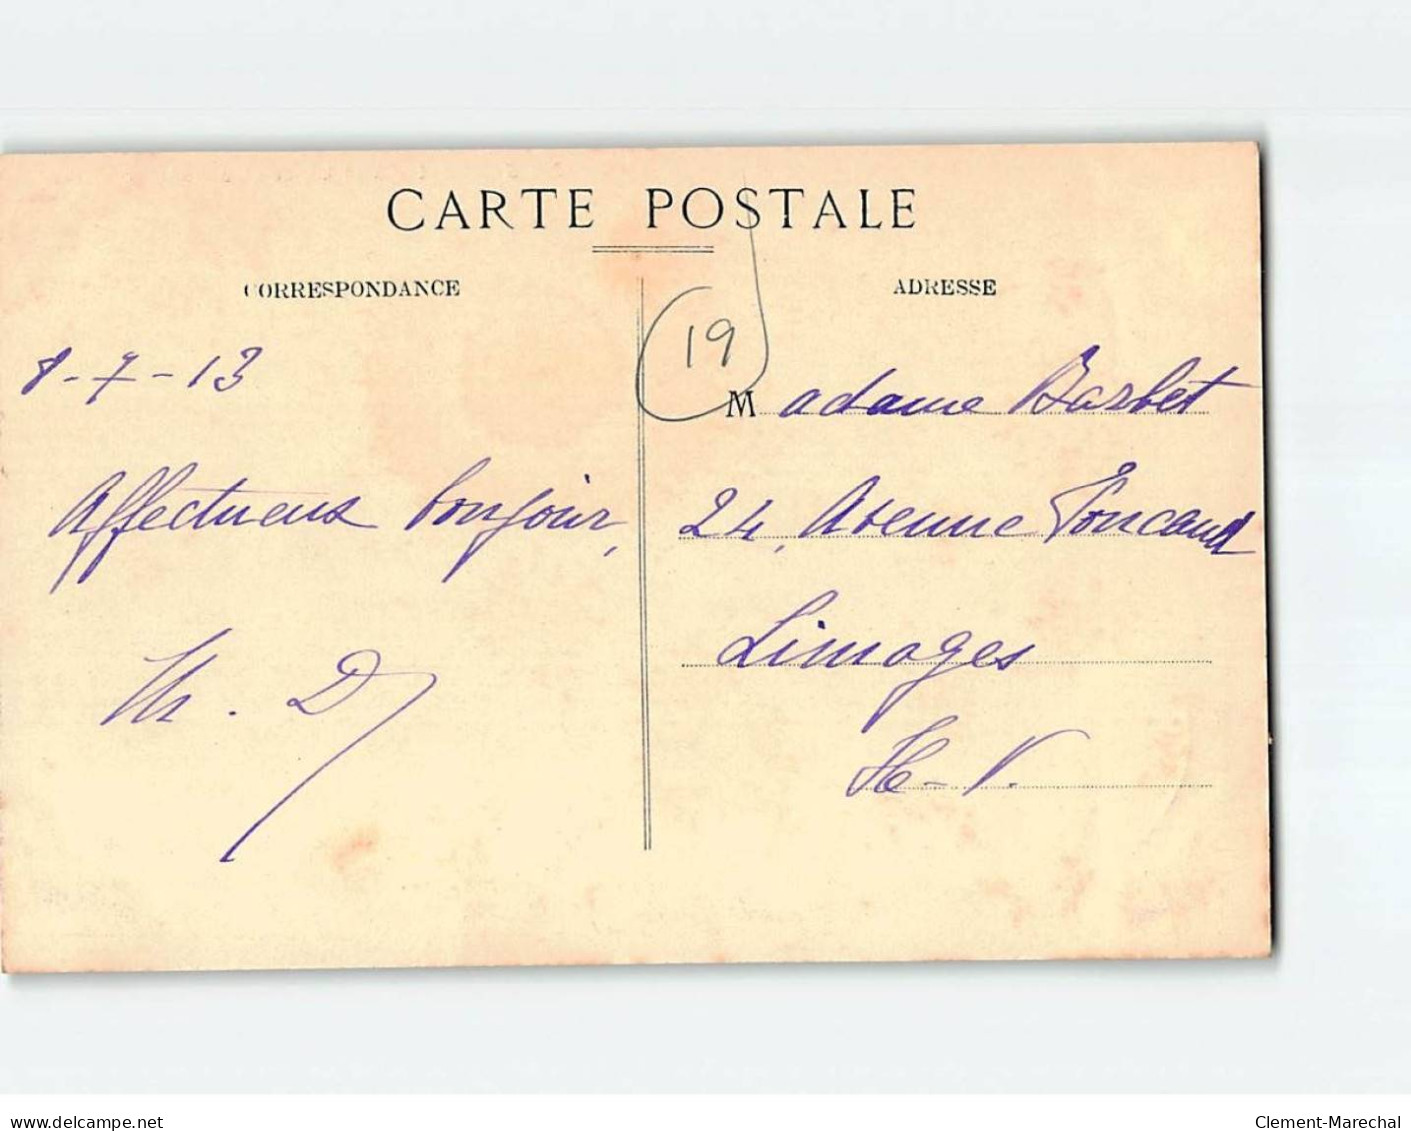 CARTE POSTALE
CORRESPONDANCE
8-7-13
Affectueux bonjour,
Th. D
ADRESSE
19
Madame Barbet
24, Avenue Foucaud
Limoges
Hte-V.
www.delcampe.net
Clement-Marechal